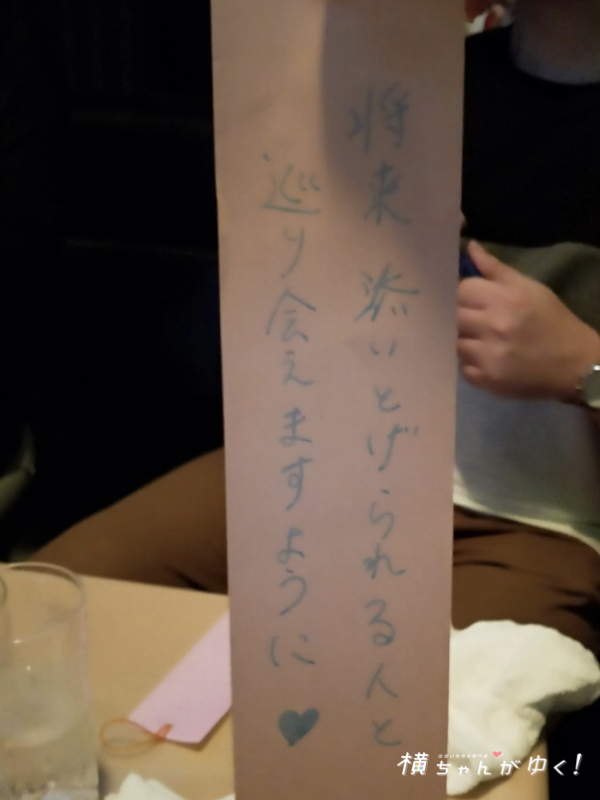 将来 添いとげられる人と
巡り会えますように♥
横ちゃんがゆく!